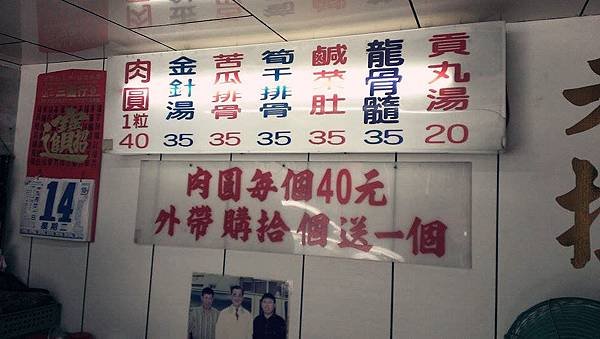 貢丸湯 20
龍骨髓 35
鹹菜肚 35
筍干排骨 35
苦瓜排骨 35
金針湯 35
肉圓 1粒 40
肉圓每個40元
外帶購拾個送一個
14
星期二